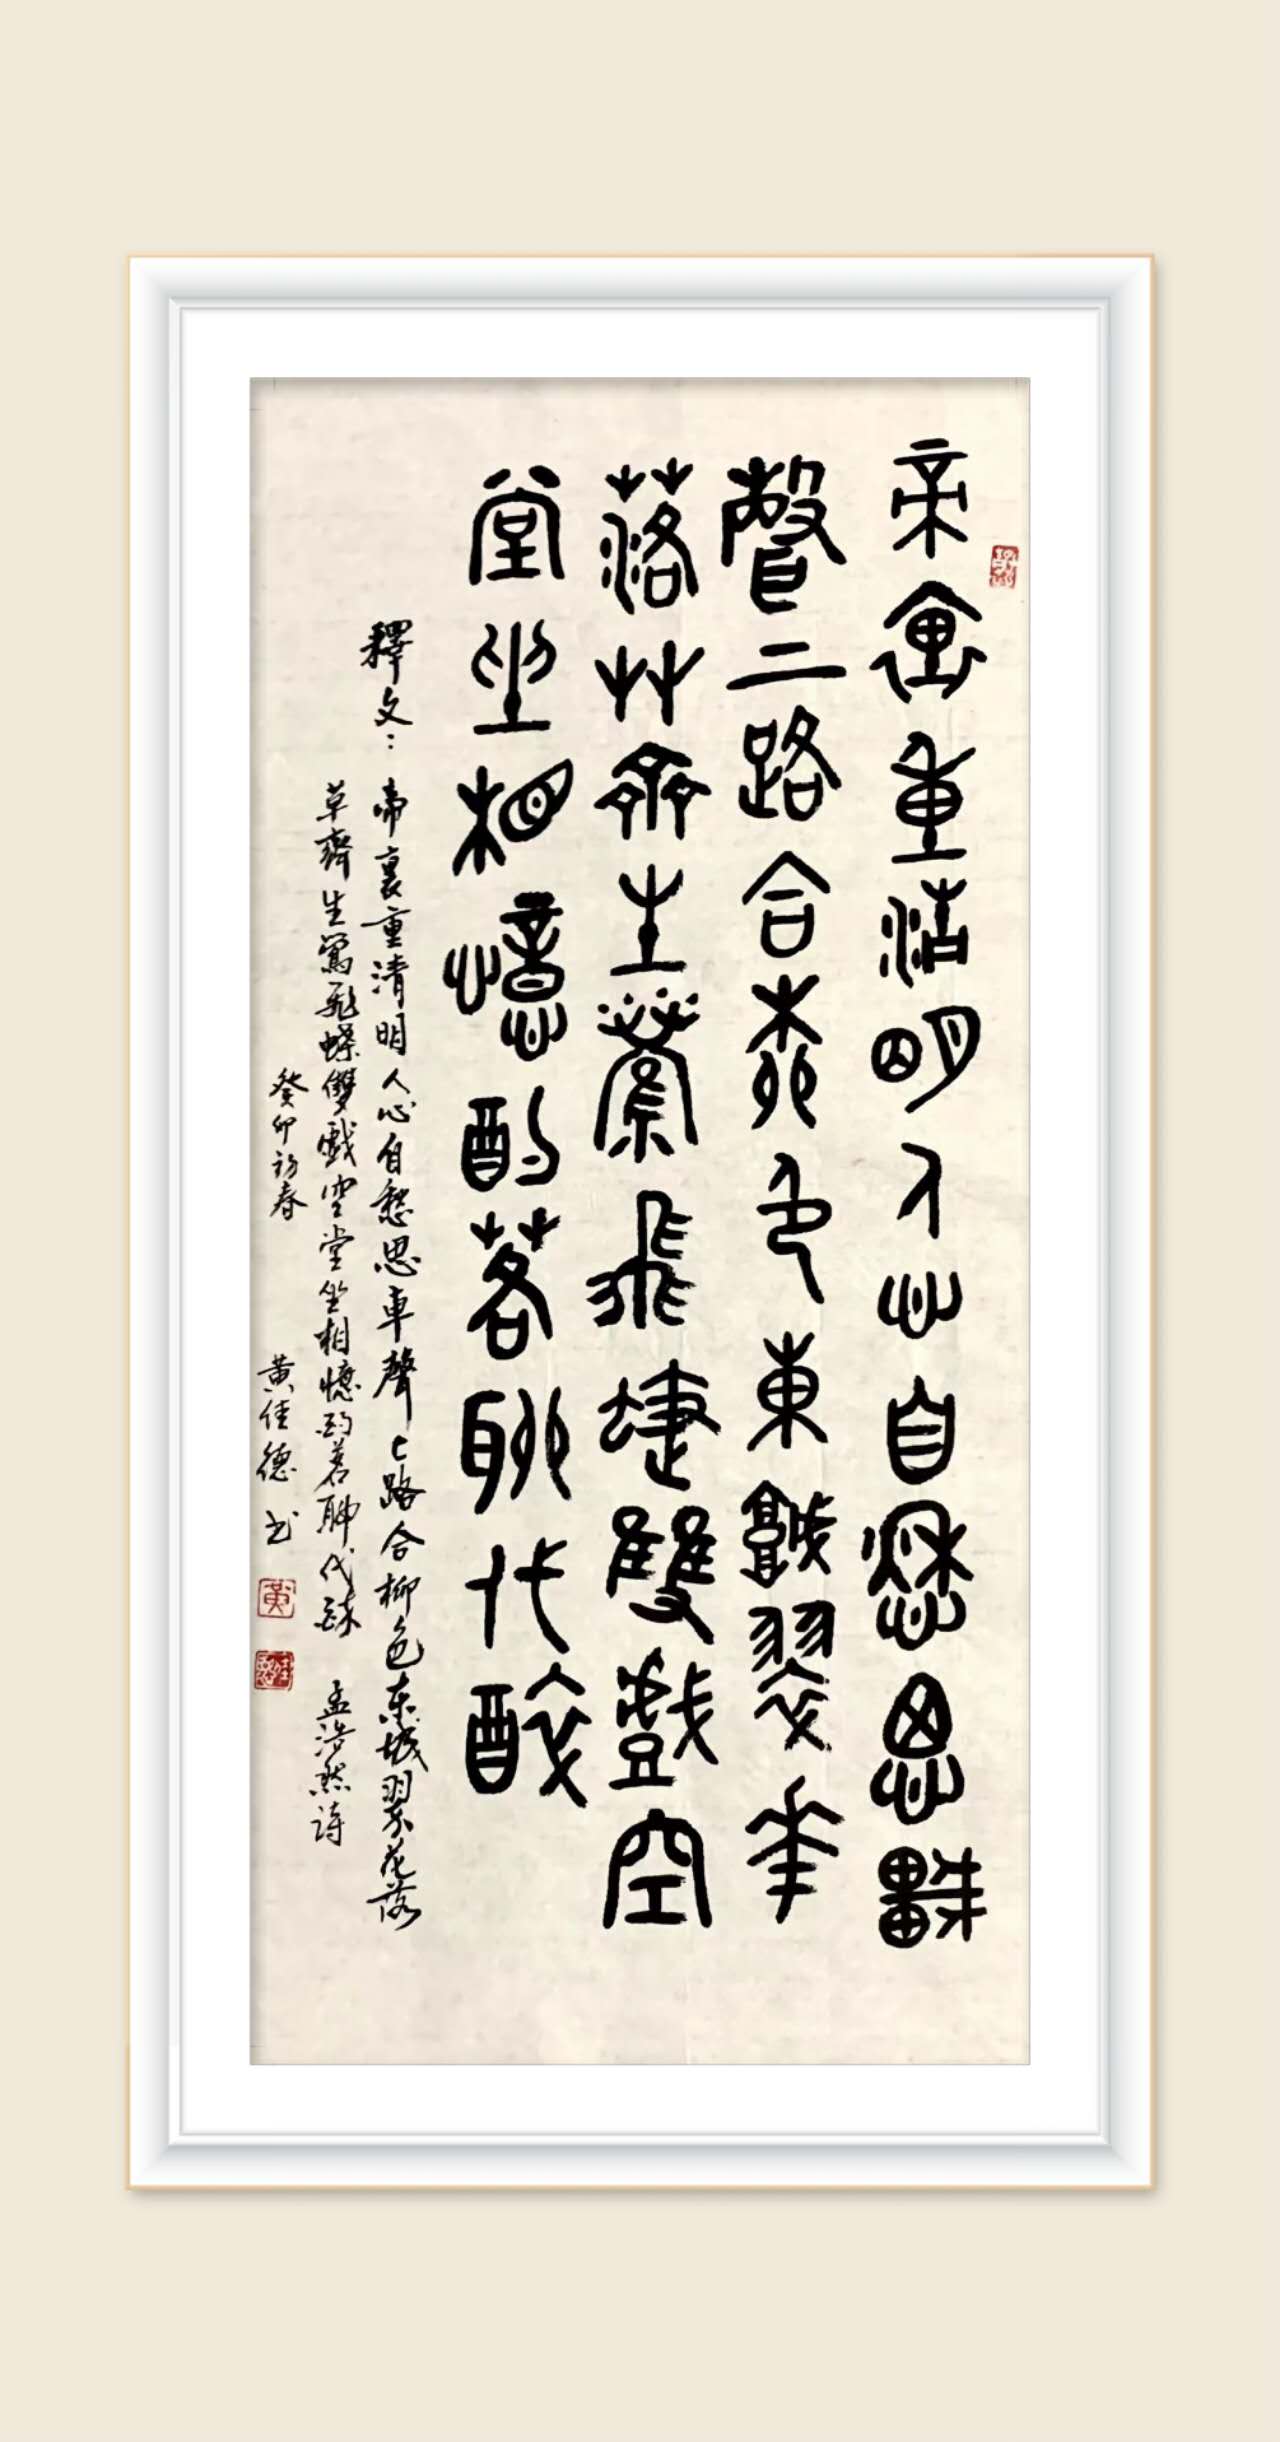 帝里重清明人心自愁思車
聲二路合柳色東城翠花
落草齊生鶯飛蝶雙戲空
堂坐相憶酌茗聊代醉
釋文：帝裏重清明人心自愁思車聲〻路合柳色东城翠花落
草齊生鶯飛蝶雙戲空堂坐相憶酌茗聊代醉 孟浩然诗
癸卯初春 黄佳德书
黄